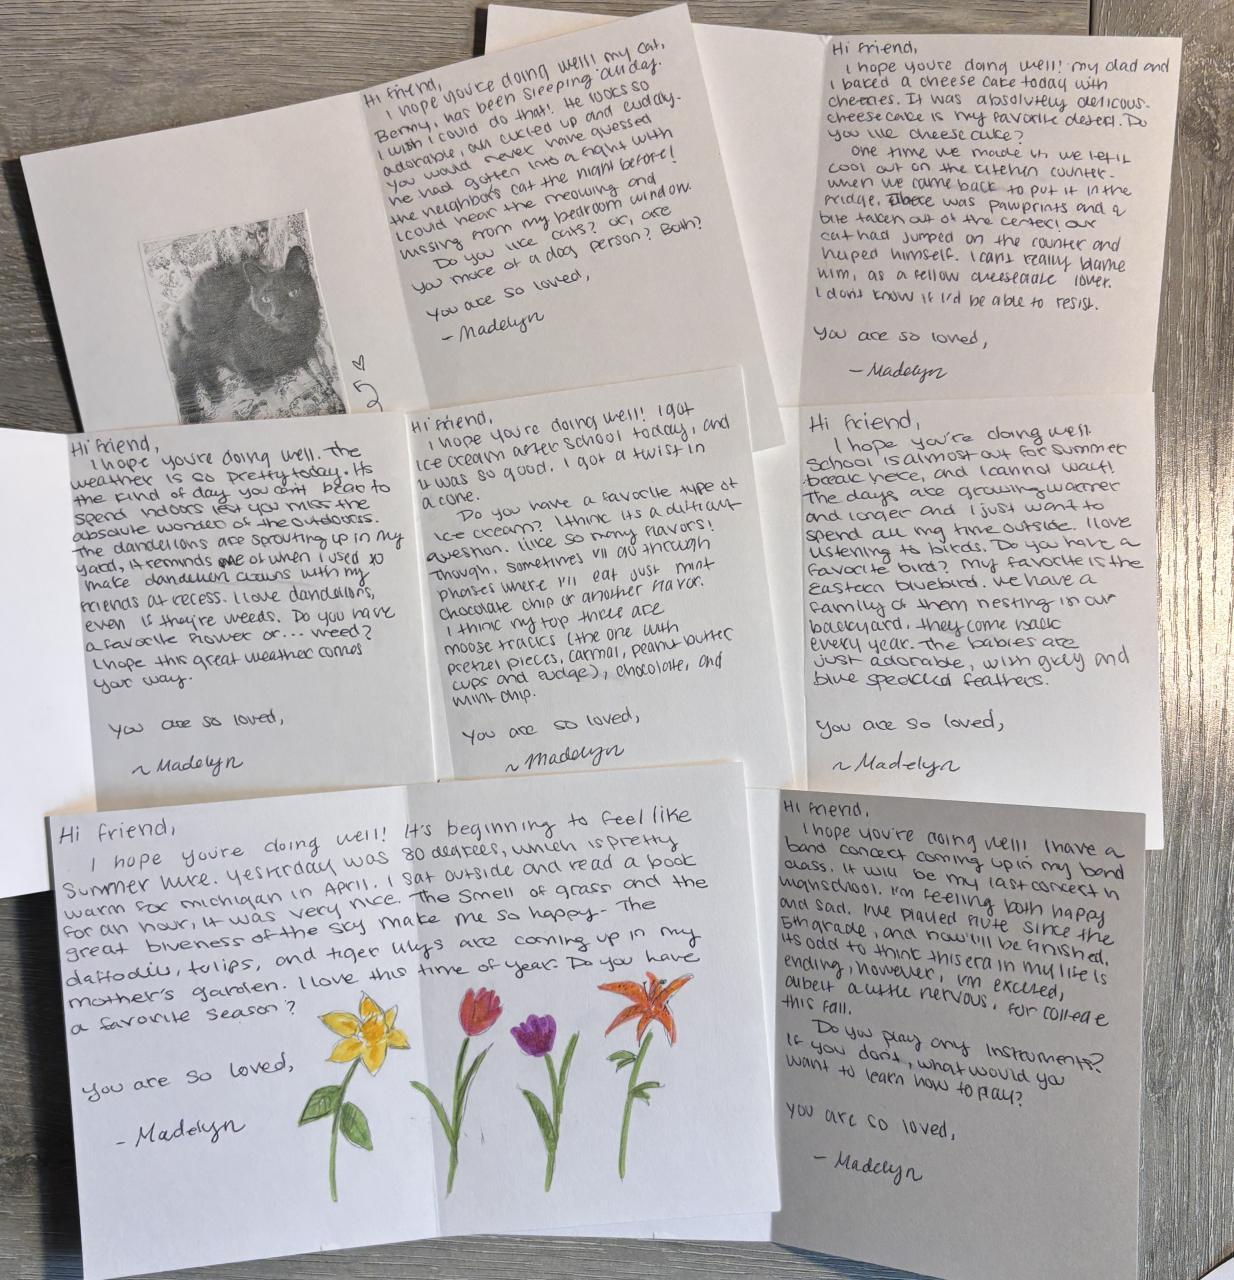 Hi friend,
I hope you're doing well! My cat,
Benny, has been sleeping all day.
I wish I could do that! He looks so
adorable, all curled up and cudday.
You would never have guessed
he had gotten into a fight with
the neighbors cat the night before!
I could hear the meowing and
hissing from my bedroom window.
Do you like cats? Or, are
you more of a dog person? Both?
You are so loved,
- Madelyn
Hi friend,
I hope you're doing well! my dad and
I baked a cheese cake today with
cherries. It was absolutely delicous.
cheese cake is my favorite desert. Do
you like cheese cake?
One time we made it, we left it
cool out on the kitchen counter.
when we came back to put it in the
fridge, there was pawprints and a
bite taken out of the center! our
cat had jumped on the counter and
helped himself. I can't really blame
him, as a fellow cheesecake lover.
I don't know if I'd be able to resist.
You are so loved,
- Madelyn
Hi friend,
I hope you're doing well. The
weather is so pretty today. Its
the kind of day you can't bear to
spend indoors lest you miss the
absolute wonder of the outdoors.
The dandelions are sprouting up in my
yard, it reminds me of when I used to
make dandelion crowns with my
friends at recess. I love dandelions,
even if they're weeds. Do you have
a favorite flower or... weed?
I hope this great weather comes
your way.
You are so loved,
~ Madelyn
Hi friend,
I hope you're doing well! I got
ice cream after school today, and
it was so good. I got a twist in
a cone.
Do you have a favorite type of
ice cream? I think its a difficult
question. I like so many flavors!
Though, sometimes I'll go through
phases where I'll eat just mint
chocolate chip or another flavor.
I think my top three are
moose tracks (the one with
pretzel pieces, carmal, peanut butter
cups and fudge), chocolate, and
mint chip.
You are so loved,
~ Madelyn
Hi friend,
I hope you're doing well.
School is almost out for summer
break here, and I cannot wait!
The days are growing warmer
and longer and I just want to
spend all my time outside. I love
listening to birds. Do you have a
favorite bird? My favorite is the
Eastern bluebird. We have a
family of them nesting in our
backyard. they come back
every year. The babies are
just adorable, with grey and
blue speckled feathers.
You are so loved,
~ Madelyn
Hi friend,
I hope you're doing well! It's beginning to feel like
summer here. Yesterday was 80 degrees, which is pretty
warm for michigan in April. I sat outside and read a book
for an hour, it was very nice. The smell of grass and the
great blueness of the sky make me so happy- The
daffodils, tulips, and tiger lilys are coming up in my
mother's garden. I love this time of year. Do you have
a favorite season?
You are so loved,
- Madelyn
Hi friend,
I hope you're doing well! I have a
band concert coming up in my band
class. It will be my last concert in
highschool. I'm feeling both happy
and sad. I've played flute since the
5th grade, and now I'll be finished.
Its odd to think this era in my life is
ending, however, I'm excited,
albeit a little nervous, for college
this fall.
Do you play any instruments?
If you don't, what would you
want to learn how to play?
You are so loved,
- Madelyn